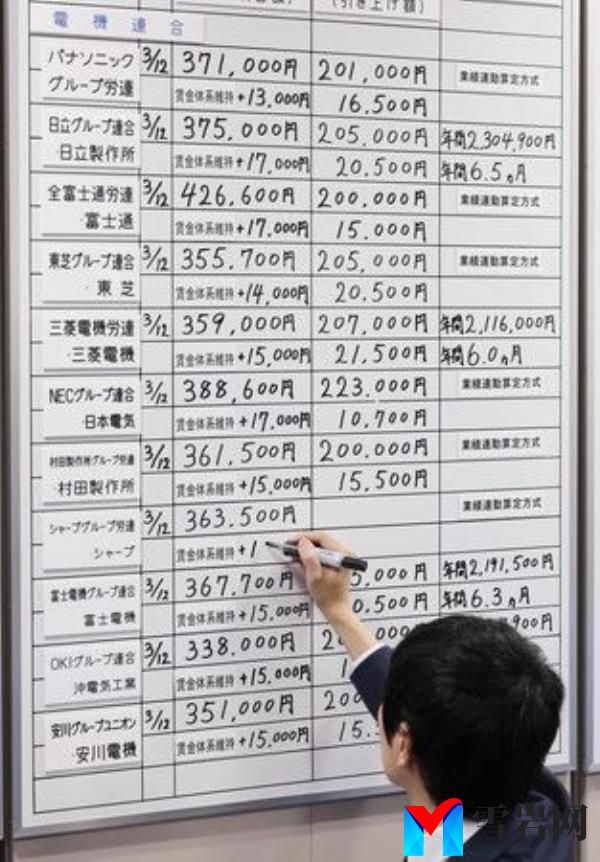 (引き上げ額)
電機連合
パナソニック 3/12 371,000円 201,000円 業績連動算定方式
グループ労連 賃金体系維持+13,000円 16,500円
日立グループ連合 3/12 375,000円 205,000円 年間2,304,900円
・日立製作所 賃金体系維持+17,000円 20,500円 年間6.5ヵ月
全富士通労連 3/12 426,600円 200,000円 業績連動算定方式
・富士通 賃金体系維持+17,000円 15,000円
東芝グループ連合 3/12 355,700円 205,000円 業績連動算定方式
・東芝 賃金体系維持+14,000円 20,500円
三菱電機労連 3/12 359,000円 207,000円 年間2,116,000円
・三菱電機 賃金体系維持+15,000円 21,500円 年間6.0ヵ月
NECグループ連合 3/12 388,600円 223,000円 業績連動算定方式
・日本電気 賃金体系維持+17,000円 10,700円
村田製作所グループ労連 3/12 361,500円 200,000円 業績連動算定方式
・村田製作所 賃金体系維持+15,000円 15,500円
シャープグループ労連 3/12 363,500円 業績連動算定方式
シャープ 賃金体系維持+1
富士電機グループ連合 3/12 367,700円 5,000円 年間2,191,500円
富士電機 賃金体系維持+15,000円 0,500円 年間6.3ヵ月
OKIグループ連合 3/12 338,000円 000円 900円
沖電気工業 賃金体系維持+15,000円
安川グループユニオン 3/12 351,000円 200
・安川電機 賃金体系維持+15,000円 15.
雪岩网